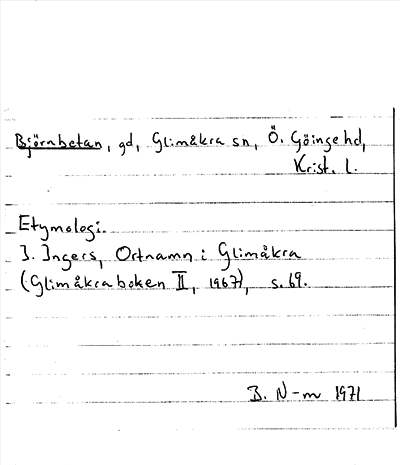 Björnbetan, gd, Glimåkra sn, Ö. Göinge hd,
Krist. l.
Etymologi.
I. Ingers, Ortnamn i Glimåkra
(Glimåkraboken II, 1967), s. 69.
B. N-m 1971